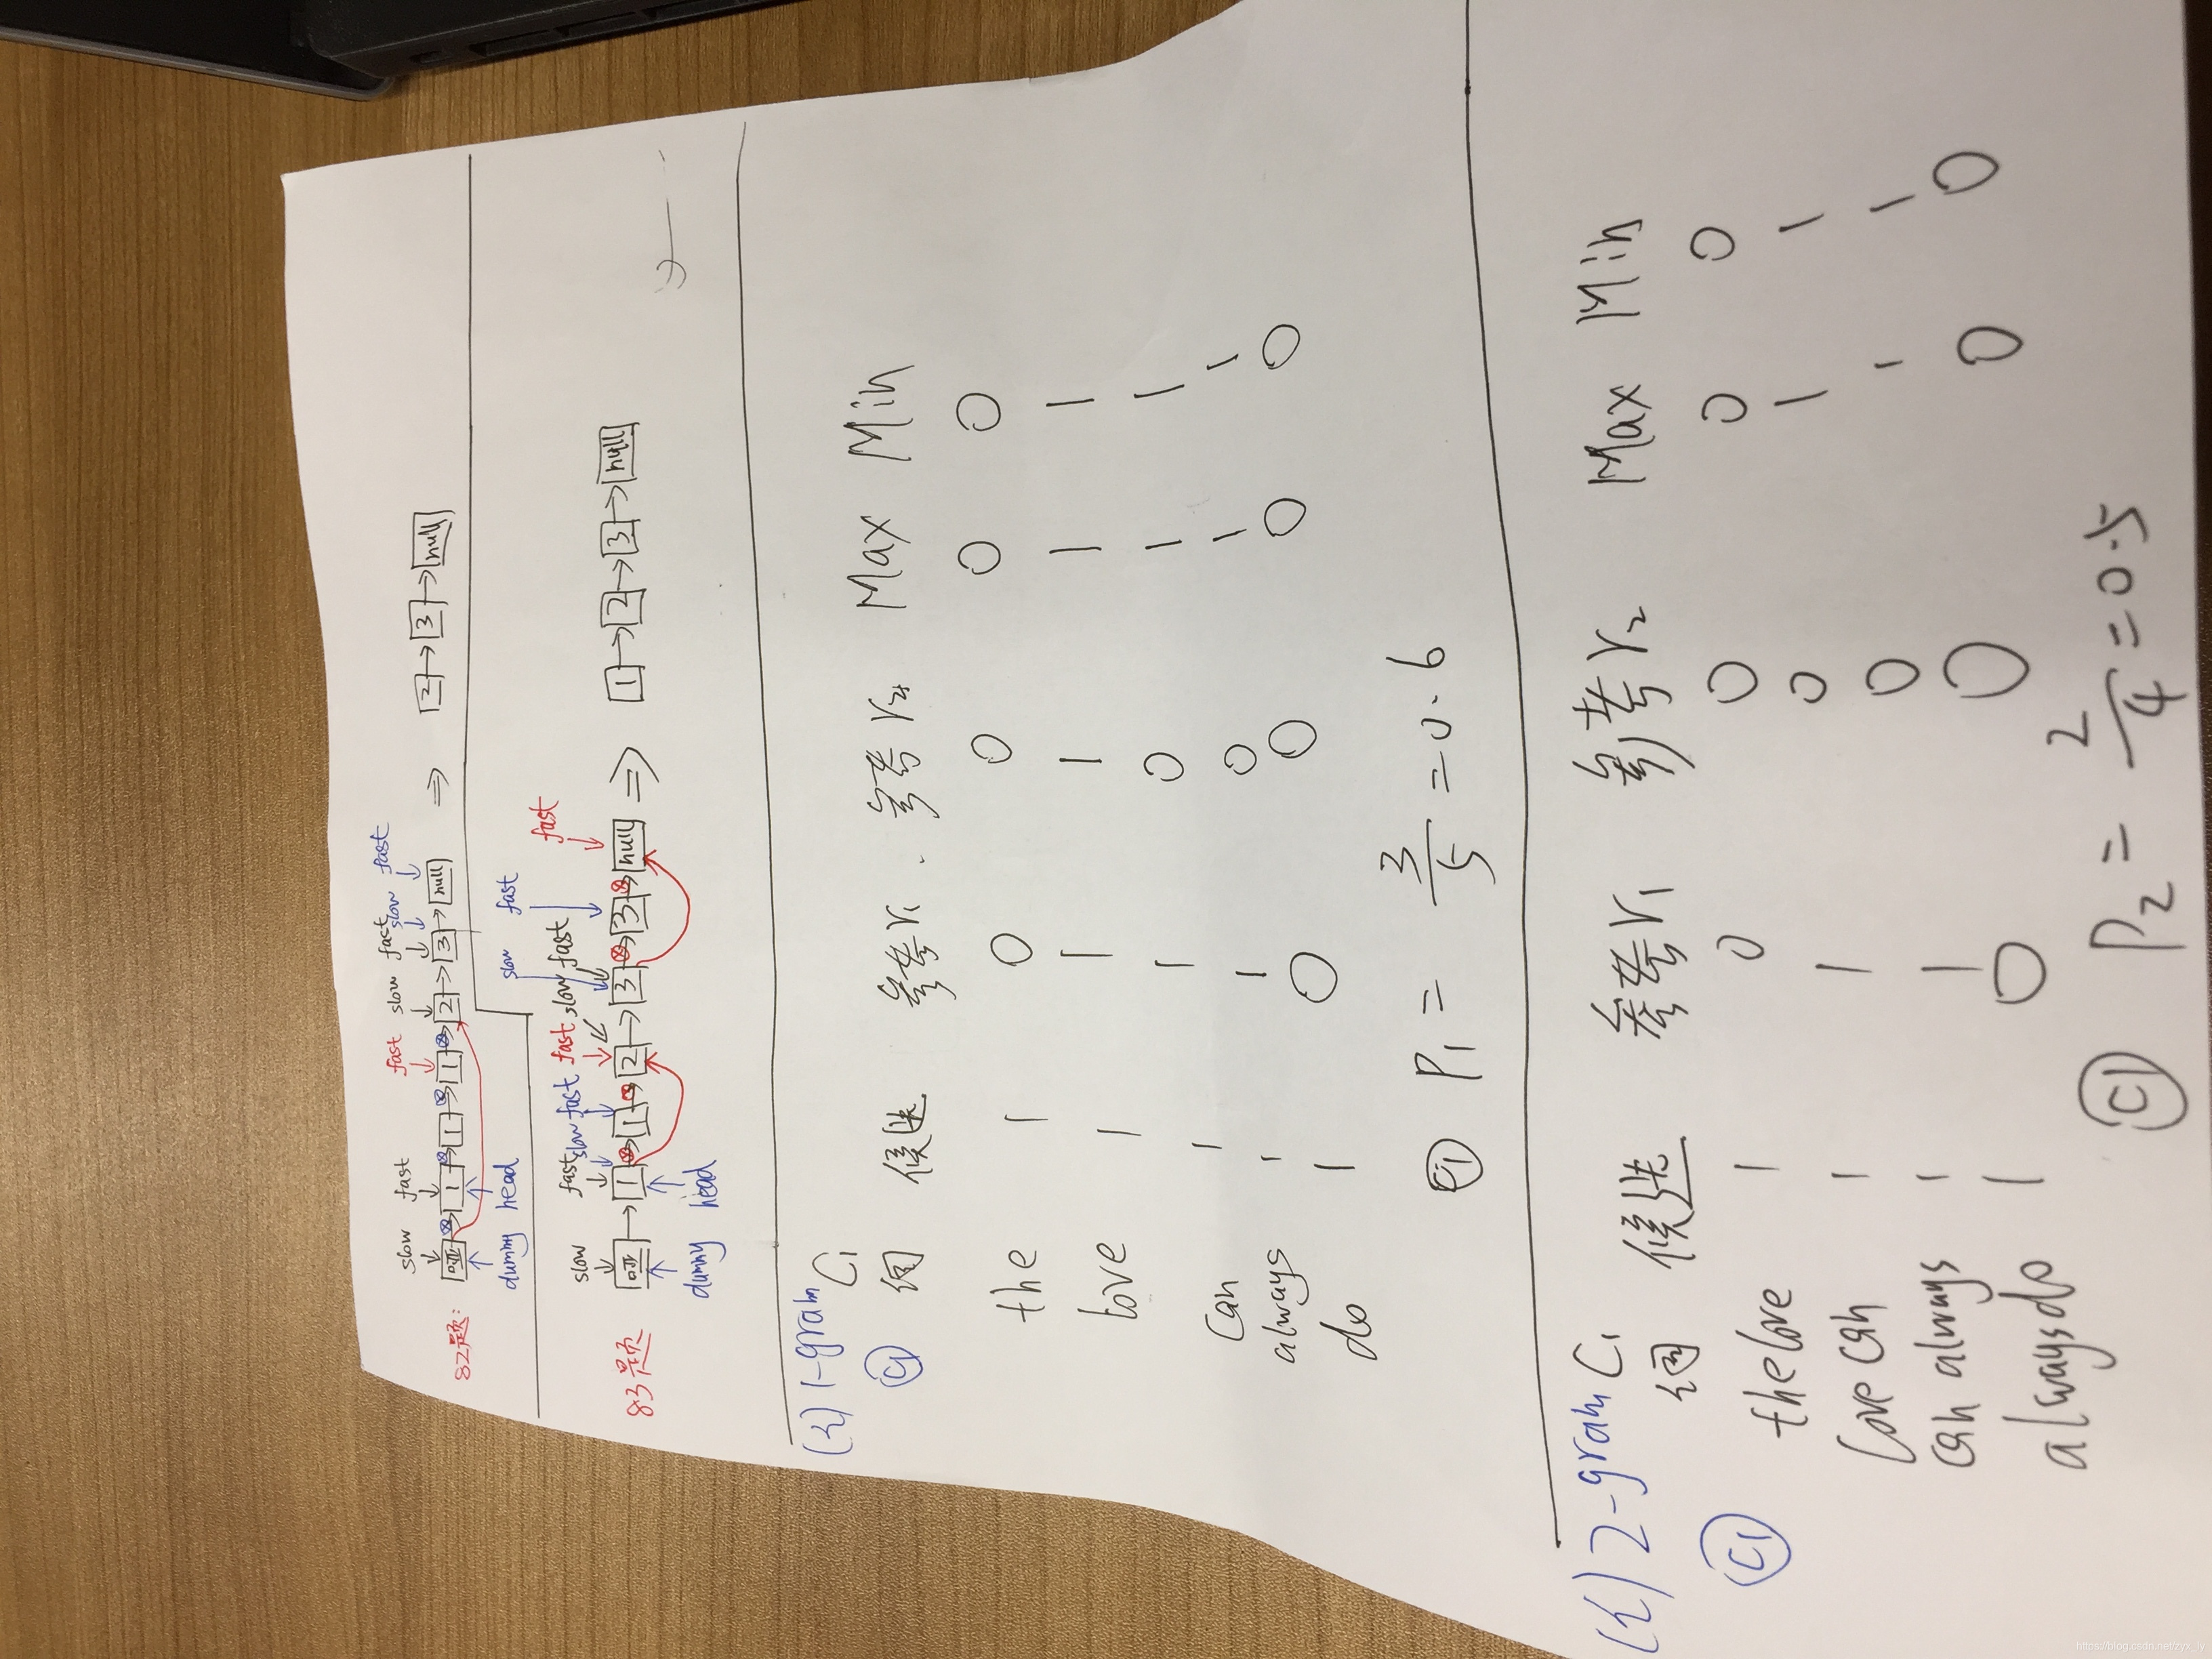 slow fast fast slow fast slow fast
82题: 哑 → 1 → 1 → 1 → 2 → 3 → null ⇒ 2 → 3 → null
dummy head
slow fast
slow fast slow fast fast slow fast fast
83题 哑 → 1 → 1 → 2 → 3 → 3 → null ⇒ 1 → 2 → 3 → null
dummy head
1-gram C1
C1 词 候选 参考r1 参考r2 Max Min
the 1 0 0 0 0
love 1 1 1 1 1
can 1 1 0 1 1
always 1 1 0 1 1
do 1 0 0 0 0
C1 P1 = 3/5 = 0.6
2-gram C1
C1 词 候选 参考r1 参考r2 Max Min
the love 1 0 0 0 0
love can 1 1 0 1 1
can always 1 1 0 1 1
always do 1 0 0 0 0
C1 P2 = 2/4 = 0.5
https://blog.csdn.net/zyx_ly